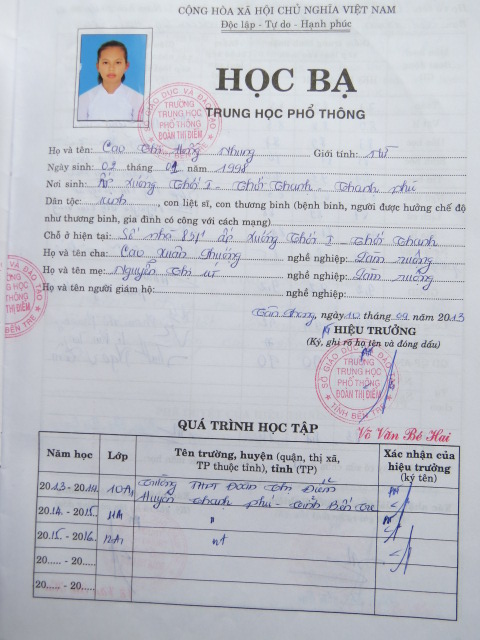 CỘNG HÒA XÃ HỘI CHỦ NGHĨA VIỆT NAM
Độc lập - Tự do - Hạnh phúc
HỌC BẠ
TRUNG HỌC PHỔ THÔNG
SỞ GIÁO DỤC VÀ ĐÀO TẠO
TRƯỜNG
TRUNG HỌC
PHỔ THÔNG
ĐOÀN THỊ ĐIỂM
Họ và tên: Cao Thị Hồng Nhung Giới tính: Nữ
Ngày sinh: 02 tháng 01 năm 1998
Nơi sinh: Ấp Xương Thới I - Thới Thạnh - Thạnh Phú
Dân tộc: Kinh, con liệt sĩ, con thương binh (bệnh binh, người được hưởng chế độ
như thương binh, gia đình có công với cách mạng)
Chỗ ở hiện tại: Số nhà 831 ấp Xương Thới I - Thới Thạnh
Họ và tên cha: Cao Xuân Thưởng nghề nghiệp: Làm ruộng
Họ và tên mẹ: Nguyễn Thị Út nghề nghiệp: Làm ruộng
Họ và tên người giám hộ: nghề nghiệp:
ngày 10 tháng 09 năm 2013
HIỆU TRƯỞNG
(Ký, ghi rõ họ tên và đóng dấu)
SỞ GIÁO DỤC VÀ ĐÀO TẠO
TRƯỜNG
TRUNG HỌC
PHỔ THÔNG
ĐOÀN THỊ ĐIỂM
TỈNH BẾN TRE
VÀ ĐÀO TẠO
TRƯỜNG
TRUNG HỌC
PHỔ THÔNG
THỊ ĐIỂM
TỈNH BẾN TRE
Võ Văn Bé Hai
QUÁ TRÌNH HỌC TẬP
Năm học Lớp Tên trường, huyện (quận, thị xã, TP thuộc tỉnh), tỉnh (TP) Xác nhận của hiệu trưởng (ký tên)
2013 - 2014 10A1 Trường THPT Đoàn Thị Điểm
Huyện Thạnh Phú - Tỉnh Bến Tre
2014 - 2015 11A1 "
2015 - 2016 12A1 nt
20..... - 20.....
20..... - 20.....